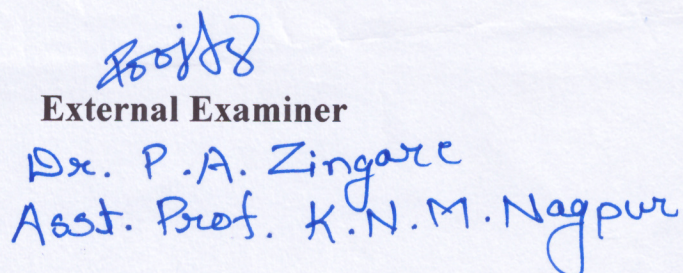 External Examiner
Dr. P.A. Zingare
Asst. Prof. K.N.M. Nagpur